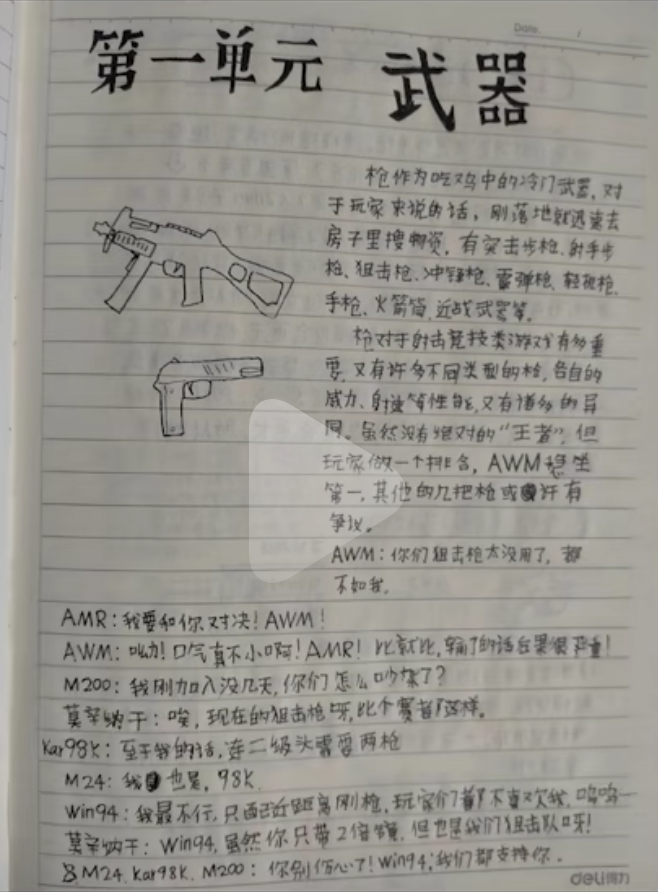 Date. /
第一单元 武器
枪作为吃鸡中的冷门武器,对
于玩家来说的话,刚落地就迅速去
房子里搜物资,有突击步枪、射手步
枪、狙击枪、冲锋枪、霰弹枪、轻机枪、
手枪、火箭筒、近战武器等。
枪对于射击竞技类游戏有多重
要,又有许多不同类型的枪,各自的
威力、射速等性能,又有诸多的异
同。虽然没有绝对的“王者”,但
玩家做一个排名,AWM稳坐
第一,其他的几把枪或许有
争议。
AWM:你们狙击枪太没用了,都
不如我。
AMR:我要和你对决!AWM!
AWM:呦!口气真不小啊!AMR!比就比,输了的话后果很严重!
M200:我刚加入没几天,你们怎么吵架了?
莫辛纳干:唉,现在的狙击枪呀,比个赛都这样。
Kar98K:至于我的话,连二级头需要两枪
M24:我也是,98K.
Win94:我最不行,只配近距离刚枪,玩家们都不喜欢我,呜呜…
莫辛纳干:Win94,虽然你只带2倍镜,但也是我们狙击队呀!
M24.Kar98K.M200:你别伤心了!Win94,我们都支持你.
deli得力